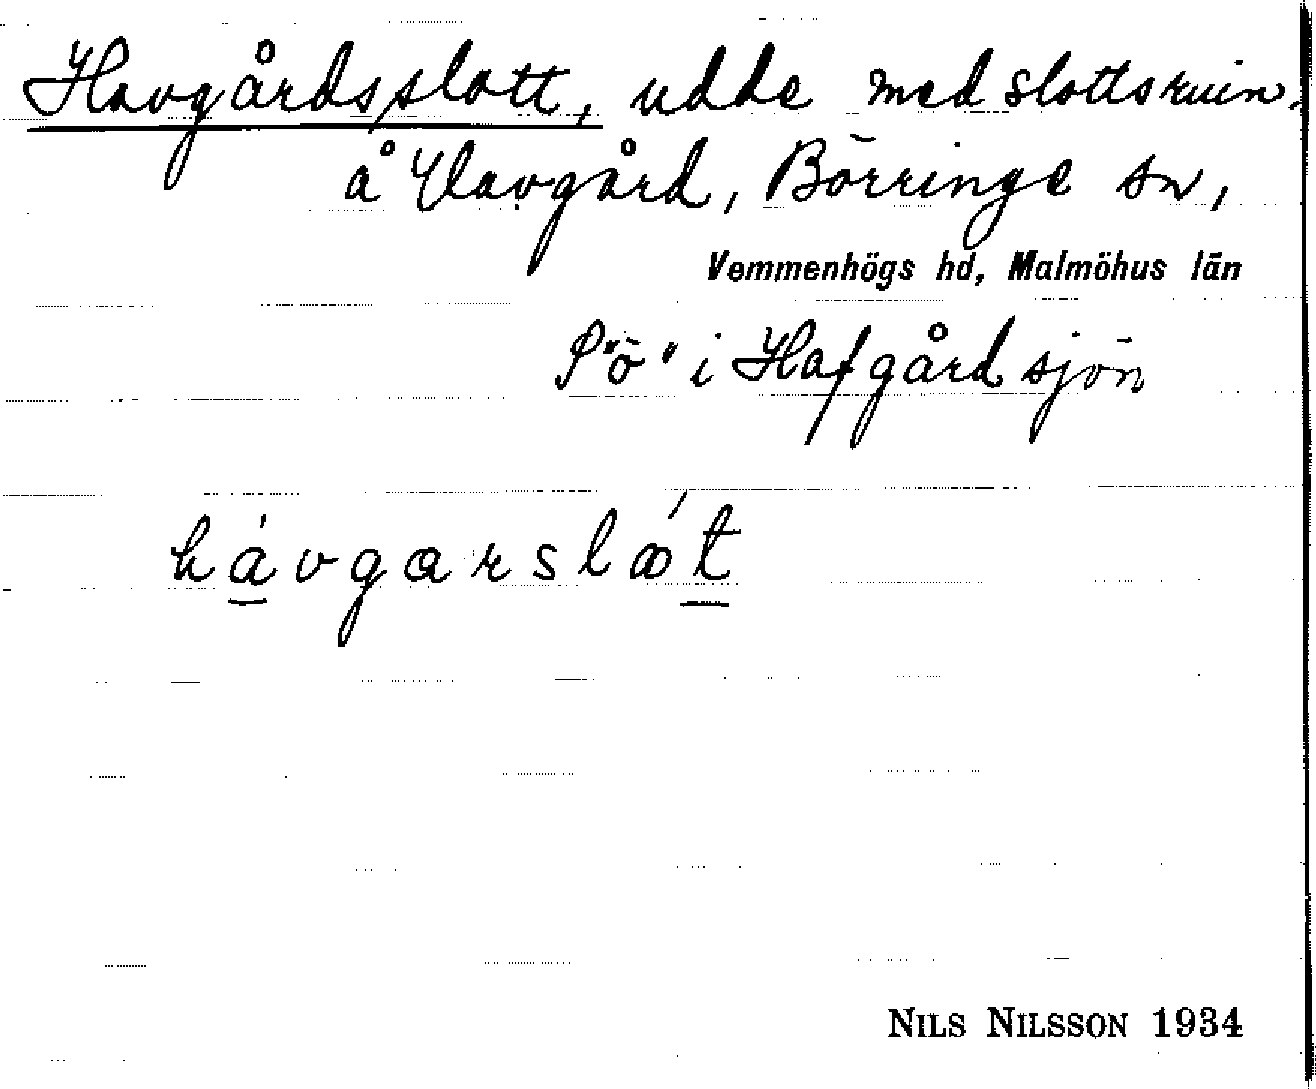 Havgårdsslott, udde med slottsruin.
å Havgård, Börringe sn,
Vemmenhögs hd, Malmöhus län
"ö" i Hafgårdsjön
hávgarslɔ́t
NILS NILSSON 1934